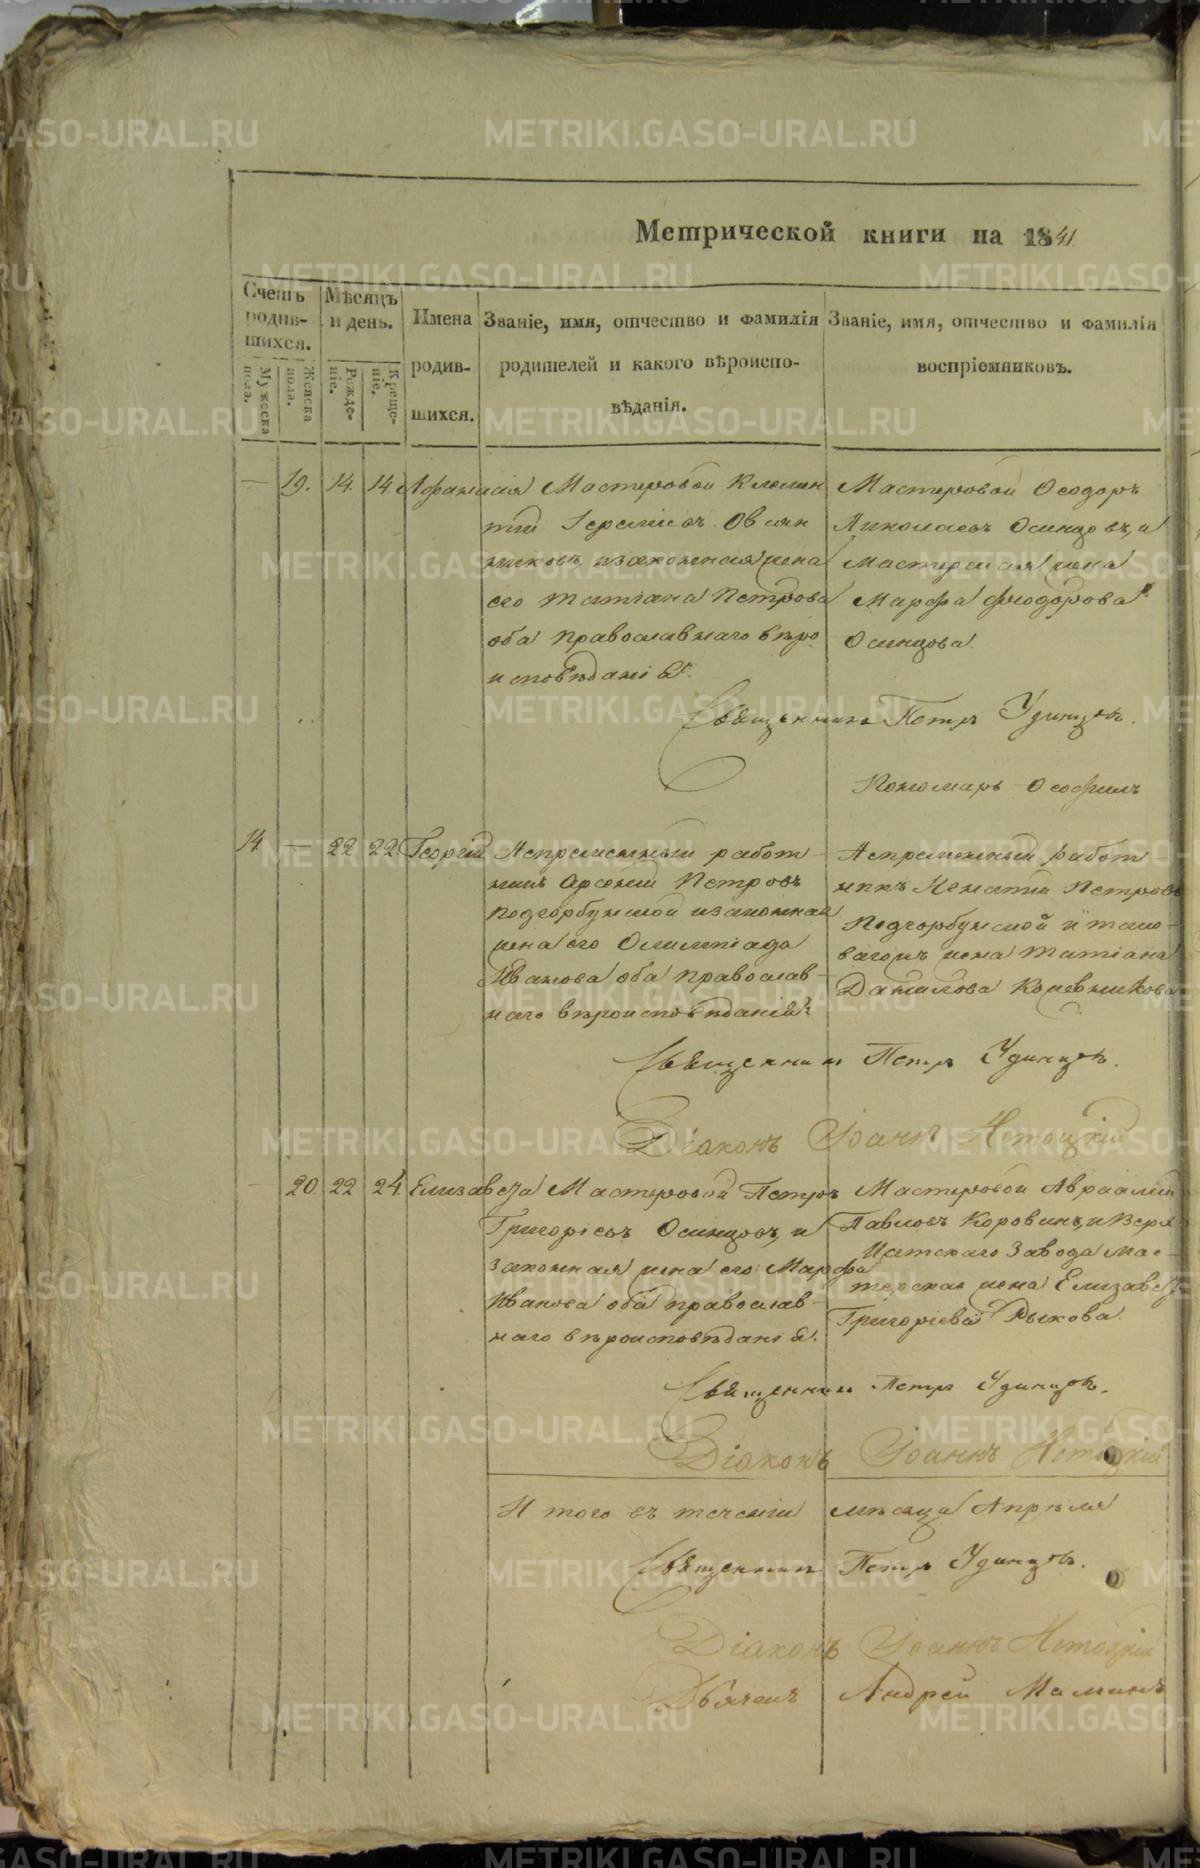 Метрической книги на 1841
Счетъ родив-шихся.
Мужеска пола.
Женска пола.
Мѣсяцъ и день.
Рожде-ніе.
Креще-ніе.
Имена родив-шихся.
Званіе, имя, отчество и фамилія
родителей и какого вѣроиспо-
вѣданія.
Званіе, имя, отчество и фамилія
воспріемниковъ.
— 19. 14. 14 Афанасія
Мастеровой Климен
тій Іереміевъ Овсян
никовъ, и законная жена
его Татіана Петрова
оба православнаго вѣро
исповѣданія.
Мастеровой Ѳеодоръ
Николаевъ Осинцовъ, и
Мастерская жена
Марфа Феодорова
Осинцова.
Священникъ Петръ Удинцовъ.
Пономарь Ѳеофилъ
14 — 22 22 Георгій
Непремѣнный работ
никъ Арсеній Петровъ
Подгорбунской и законная
жена его Олимпіада
Иванова оба православ-
наго вѣроисповѣданія.
Непременный работ
никъ Игнатій Петровъ
Подгорбунской и тако-
вагожъ жена Татіана
Данилова Кожевникова
Священникъ Петръ Удинцовъ.
Діаконъ Іоаннъ
— 20. 22 24. Елизавета
Мастеровой Петръ
Григоріевъ Осинцовъ, и
законная жена его Марфа
Иванова оба православ-
наго вѣроисповѣданія.
Мастеровой Авраамій
Павловъ Коровинъ, и Верх-
Исетскаго Завода Мас-
терская жена Елизавета
Григоріева Рыкова.
Священникъ Петръ Удинцовъ.
Діаконъ Іоаннъ
Итого въ теченіи мѣсяца Апрѣля
Священникъ Петръ Удинцовъ.
Діаконъ Іоаннъ
Дьячекъ Андрей Маминъ
METRIKI.GASO-URAL.RU